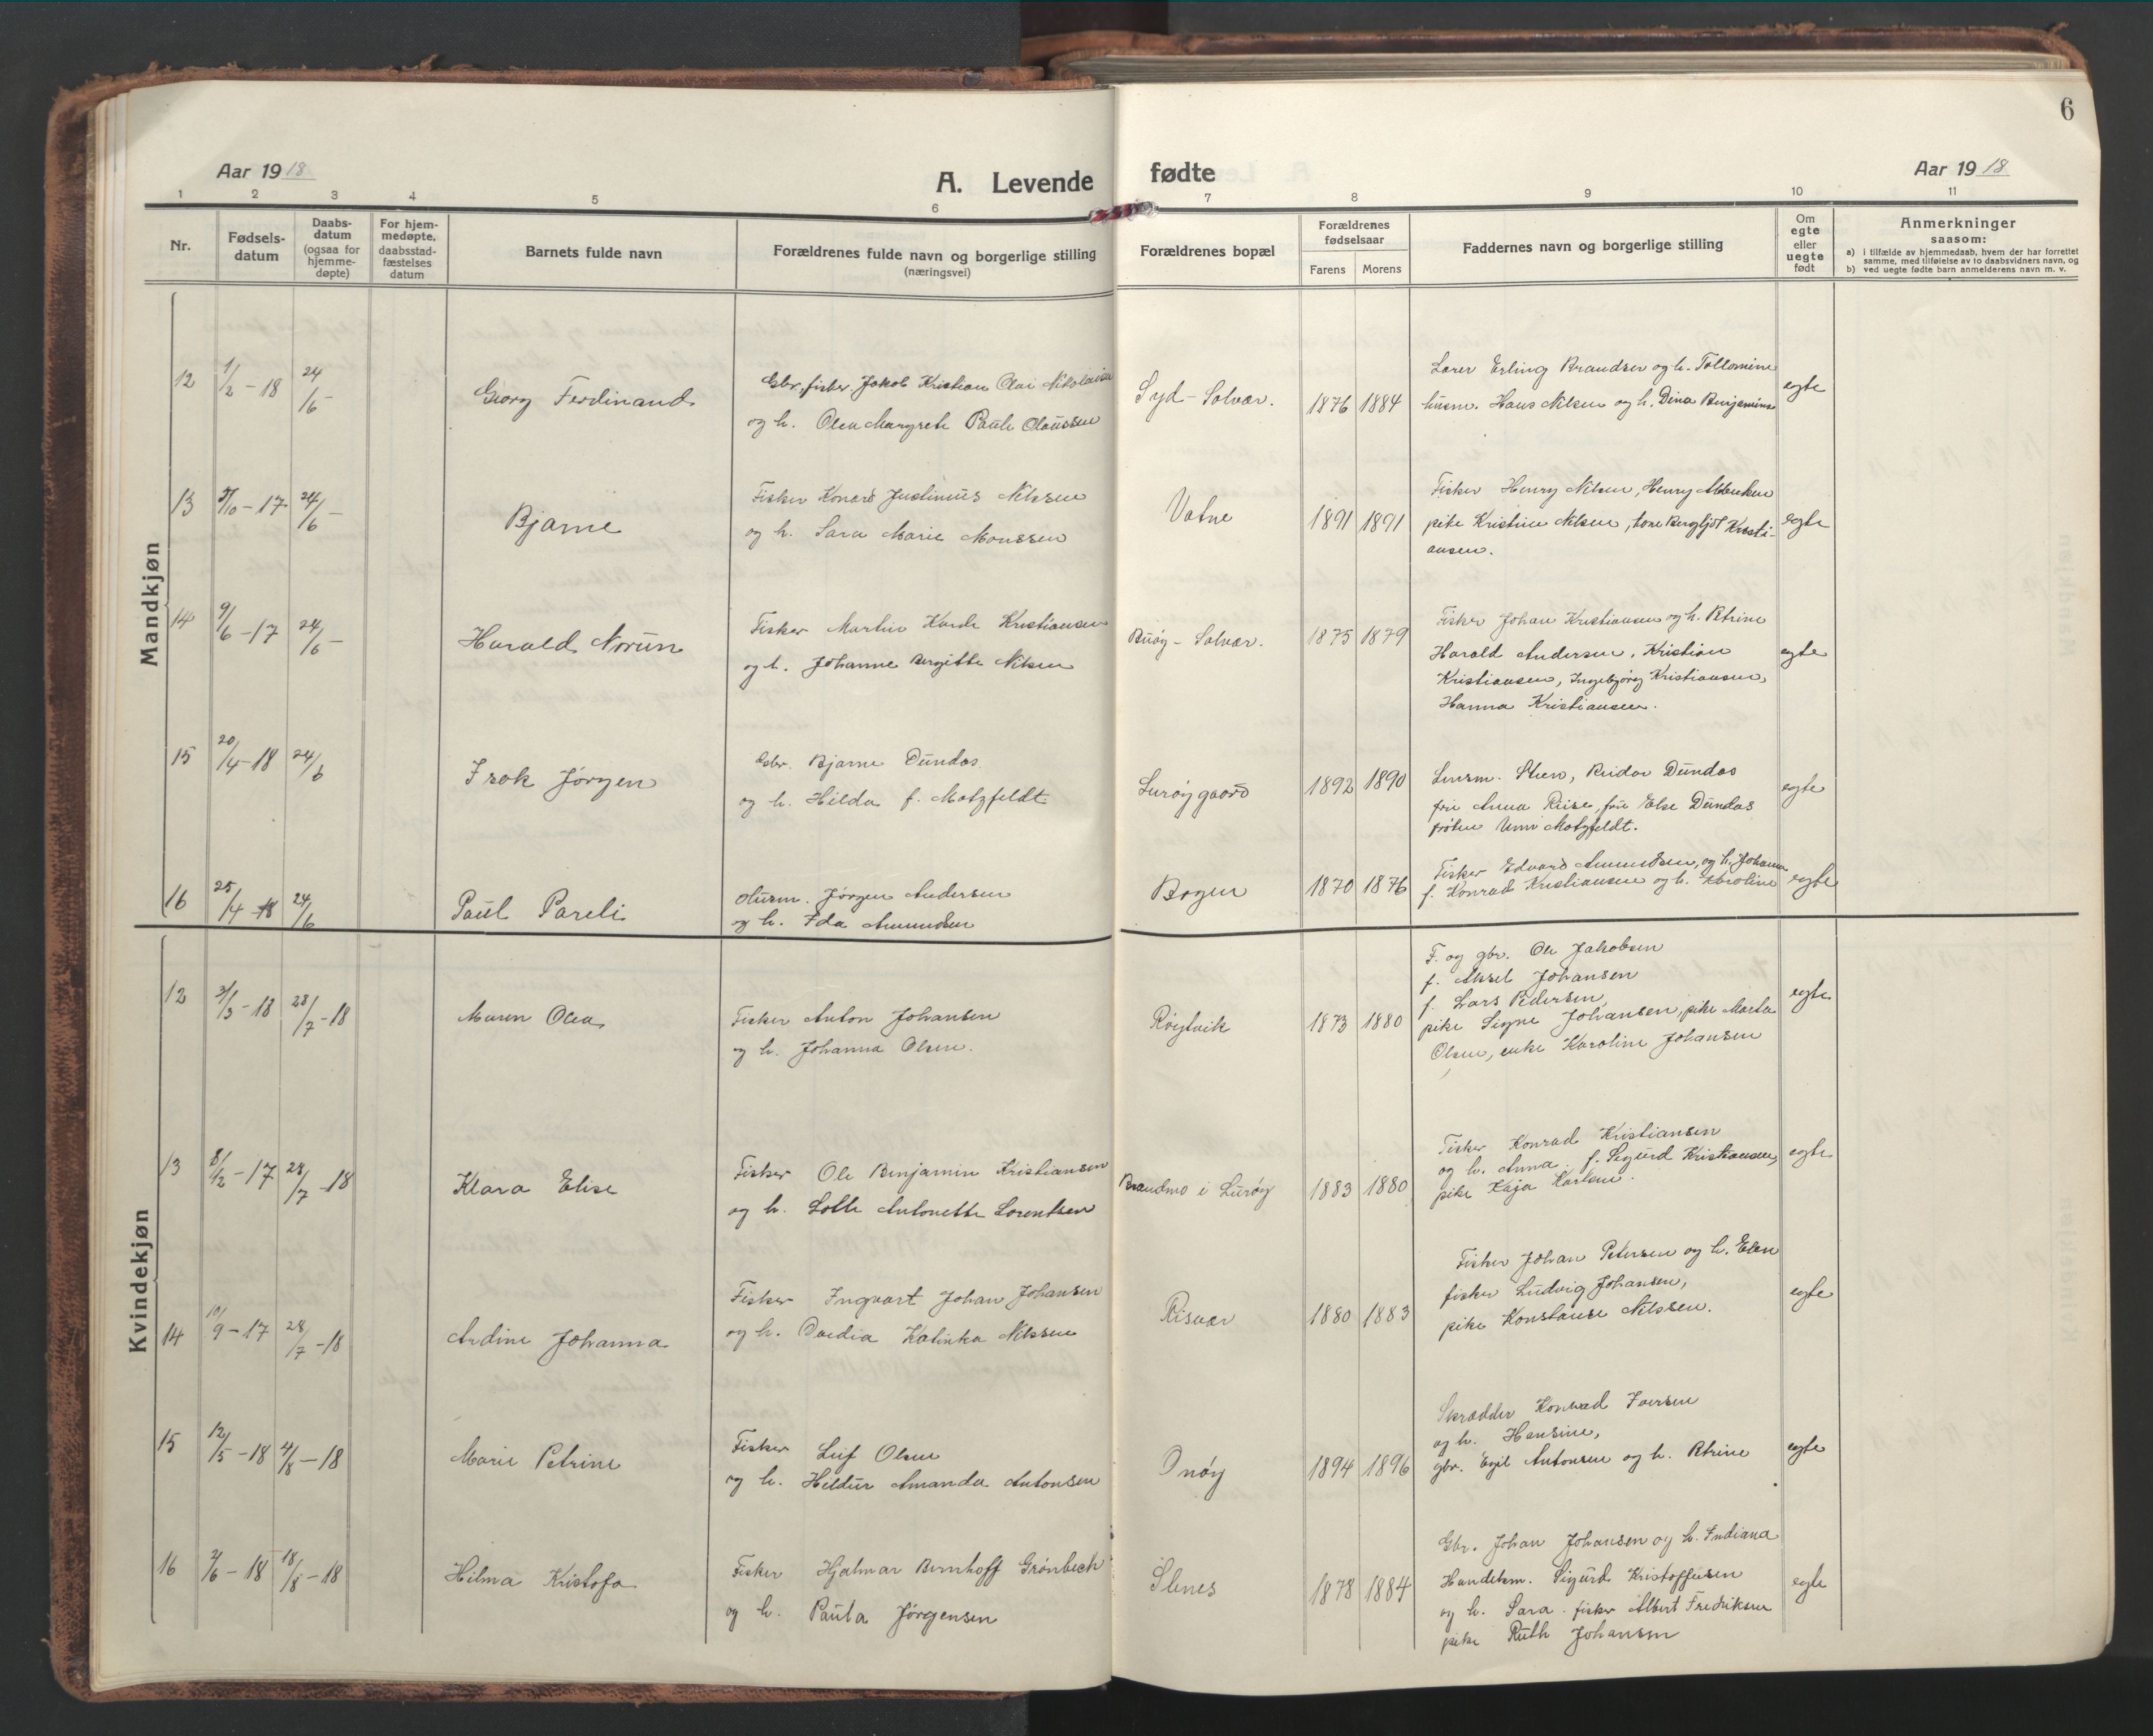 6
Aar 1918
A. Levende fødte
Aar 1918
1 2 3 4 5 6 7 8 9 10 11
Nr.
Fødsels-
datum
Daabs-
datum
(ogsaa for
hjemme-
døpte)
For hjem-
medøpte,
daabsstad-
fæstelses
datum
Barnets fulde navn
Forældrenes fulde navn og borgerlige stilling
(næringsvei)
Forældrenes bopæl
Forældrenes
fødselsaar
Farens Morens
Faddernes navn og borgerlige stilling
Om
egte
eller
uegte
født
Anmerkninger
saasom:
a) i tilfælde av hjemmedaab, hvem der har forrettet
samme, med tilføielse av to daabsvidners navn, og
b) ved uegte fødte barn anmelderens navn m. v.
Mandkjøn
12 1/2-18 24/6-
Georg Ferdinand
Gbr, fisker Jakob Kristian Olai Nikolaisen
og h. Olea Margrete Paule Olaussen
Syd-Solvær. 1876 1884
Lærer Erling Brandser og h. Tollomine
husm. Hans Nilsen og h. Dina Benjamins
egte
13 /10-17 24/6-
Bjarne
Fisker Konard Justinius Nilssen
og h. Sara Marie Monssen
Vatne 1891 1891
Fisker Henry Nilsen, Henry
pike Kristine Nilsen, kone Bergljot Kristi-
ansen.
egte
14 9/6-17 24/6-
Harald Norun
Fisker Martin Kristiansen
og h. Johanne Bergitte Nilsen
Buøy-Solvær. 1875 1879
Fisker Johan Kristiansen og h. Petrine
Harald Andersen, Kristian
Kristiansen, Ingebjørg Kristiansen,
Hanna Kristiansen.
egte
15 20/4-18 24/6
Isak Jørgen
Gbr. Bjarne Dundas
og h. Hilda f. Motzfeldt
Lurøygaard 1892 1890
Lensm. Steen, Reidar Dundas
fru Anna Riise, fru Else Dundas
frøken Unni Motzfeldt.
egte
16 25/4-18 24/6
Paul Pareli
Husm. Jørgen Andersen
og h. Ida Amundsen
Bogen 1870 1876
Fisker Edvard Amundsen, og h. Johanna
f. Konrad Kristiansen og h. Karoline
egte
Kvindekjøn
12 3/3-18 28/7-18
Maren Olea
Fisker Anton Johansen
og h. Johanna Olsen.
Røytvik 1873 1880
F. og gbr. Ole Jakobsen
f. Aksel Johansen
f. Lars Pedersen,
pike Signe Johansen, pike Marta
Olsen, enke Karoline Johansen
egte
13 8/12-17 28/7-18
Klara Elise
Fisker Ole Benjamin Kristiansen
og h. Lotte Antonette Lorentsen
Brandmo i Lurøy 1883 1880
Fisker Konrad Kristiansen
og h. Anna. f. Sigurd Kristiansen,
pike Kaja Karlsen.
egte
14 10/9-17 28/7-18
Ardine Johanna
Fisker Ingvart Johan Johansen
og h. Dardia Katinka Nilssen
Risvær 1880 1883
Fisker Johan Petersen og h. Elen
fisker Ludvig Johansen,
pike Konstanse Nilssen.
egte
15 12/5-18 4/8-18
Marie Petrine
Fisker Leif Olsen
og h. Hildur Amanda Antonsen
Onøy 1894 1896
Skrædder Konrad Iversen
og h. Hansine,
gbr. Egil Antonsen og h. Petrine
egte
16 2/6-18 18/8-18
Hilma Kristofa
Fisker Hjalmar Bernhoff Grønbech
og h. Paula Jørgensen
Stenes 1878 1884
Gbr. Johan Johansen og h. Indiana
Handelsm. Sigurd Kristoffersen
og h. Sara. fisker Albert Fredriksen
pike Ruth Johansen
egte